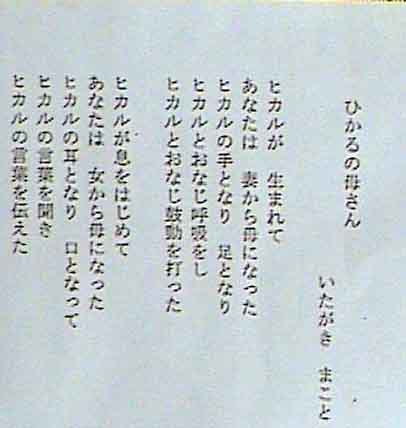 ひかるの母さん
いたがき　まこと
ヒカルが　生まれて
あなたは　妻から母になった
ヒカルの手となり　足となり
ヒカルとおなじ呼吸をし
ヒカルとおなじ鼓動を打った
ヒカルが息をはじめて
あなたは　女から母になった
ヒカルの耳となり　口となって
ヒカルの言葉を聞き
ヒカルの言葉を伝えた